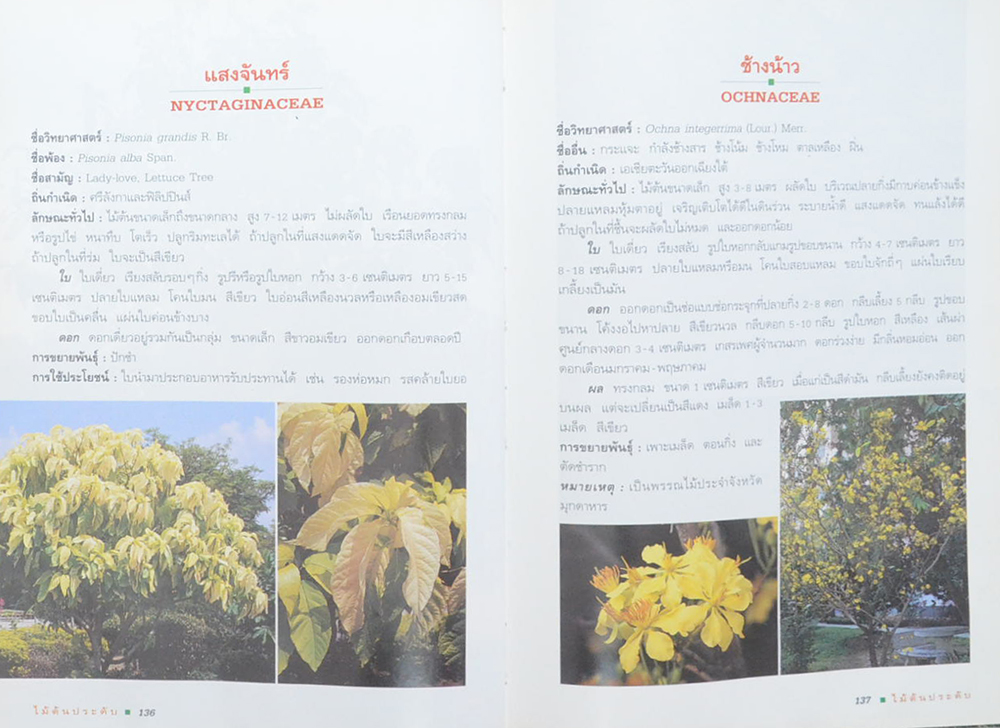 แสงจันทร์
NYCTAGINACEAE
ชื่อวิทยาศาสตร์ : Pisonia grandis R. Br.
ชื่อพ้อง : Pisonia alba Span.
ชื่อสามัญ : Lady-love, Lettuce Tree
ถิ่นกำเนิด : ศรีลังกาและฟิลิปปินส์
ลักษณะทั่วไป : ไม้ต้นขนาดเล็กถึงขนาดกลาง สูง 7-12 เมตร ไม่ผลัดใบ เรือนยอดทรงกลม
หรือรูปไข่ หนาทึบ โตเร็ว ปลูกริมทะเลได้ ถ้าปลูกในที่แสงแดดจัด ใบจะมีสีเหลืองสว่าง
ถ้าปลูกในที่ร่ม ใบจะเป็นสีเขียว
ใบ ใบเดี่ยว เรียงสลับรอบๆกิ่ง รูปรีหรือรูปใบหอก กว้าง 3-6 เซนติเมตร ยาว 5-15
เซนติเมตร ปลายใบแหลม โคนใบมน สีเขียว ใบอ่อนสีเหลืองนวลหรือเหลืองอมเขียวสด
ขอบใบเป็นคลื่น แผ่นใบค่อนข้างบาง
ดอก ดอกเดี่ยวอยู่รวมกันเป็นกลุ่ม ขนาดเล็ก สีขาวอมเขียว ออกดอกเกือบตลอดปี
การขยายพันธุ์ : ปักชำ
การใช้ประโยชน์ : ใบนำมาประกอบอาหารรับประทานได้ เช่น รองห่อหมก รสคล้ายใบยอ
ไม้ต้นประดับ 136
ช้างน้าว
OCHNACEAE
ชื่อวิทยาศาสตร์ : Ochna integerrima (Lour.) Merr.
ชื่ออื่น : กระแจะ กำลังช้างสาร ช้างโน้ม ช้างโหม ตาลเหลือง ฝิ่น
ถิ่นกำเนิด : เอเชียตะวันออกเฉียงใต้
ลักษณะทั่วไป : ไม้ต้นขนาดเล็ก สูง 3-8 เมตร ผลัดใบ บริเวณปลายกิ่งมีกาบค่อนข้างแข็ง
ปลายแหลมหุ้มตาอยู่ เจริญเติบโตได้ดีในดินร่วน ระบายน้ำดี แสงแดดจัด ทนแล้งได้ดี
ถ้าปลูกในที่ชื้นจะผลัดใบไม่หมด และออกดอกน้อย
ใบ ใบเดี่ยว เรียงสลับ รูปใบหอกกลับแกมรูปขอบขนาน กว้าง 4-7 เซนติเมตร ยาว
8-18 เซนติเมตร ปลายใบแหลมหรือมน โคนใบสอบแหลม ขอบใบจักถี่ๆ แผ่นใบเรียบ
เกลี้ยงเป็นมัน
ดอก ออกดอกเป็นช่อแบบช่อกระจุกที่ปลายกิ่ง 2-8 ดอก กลีบเลี้ยง 5 กลีบ รูปขอบ
ขนาน โค้งงอไปหาปลาย สีเขียวนวล กลีบดอก 5-10 กลีบ รูปใบหอก สีเหลือง เส้นผ่า
ศูนย์กลางดอก 3-4 เซนติเมตร เกสรเพศผู้จำนวนมาก ดอกร่วงง่าย มีกลิ่นหอมอ่อน ออก
ดอกเดือนมกราคม-พฤษภาคม
ผล ทรงกลม ขนาด 1 เซนติเมตร สีเขียว เมื่อแก่เป็นสีดำมัน กลีบเลี้ยงยังคงติดอยู่
บนผล แต่จะเปลี่ยนเป็นสีแดง เมล็ด 1-3
เมล็ด สีเขียว
การขยายพันธุ์ : เพาะเมล็ด ตอนกิ่ง และ
ตัดชำราก
หมายเหตุ : เป็นพรรณไม้ประจำจังหวัด
มุกดาหาร
137 ไม้ต้นประดับ